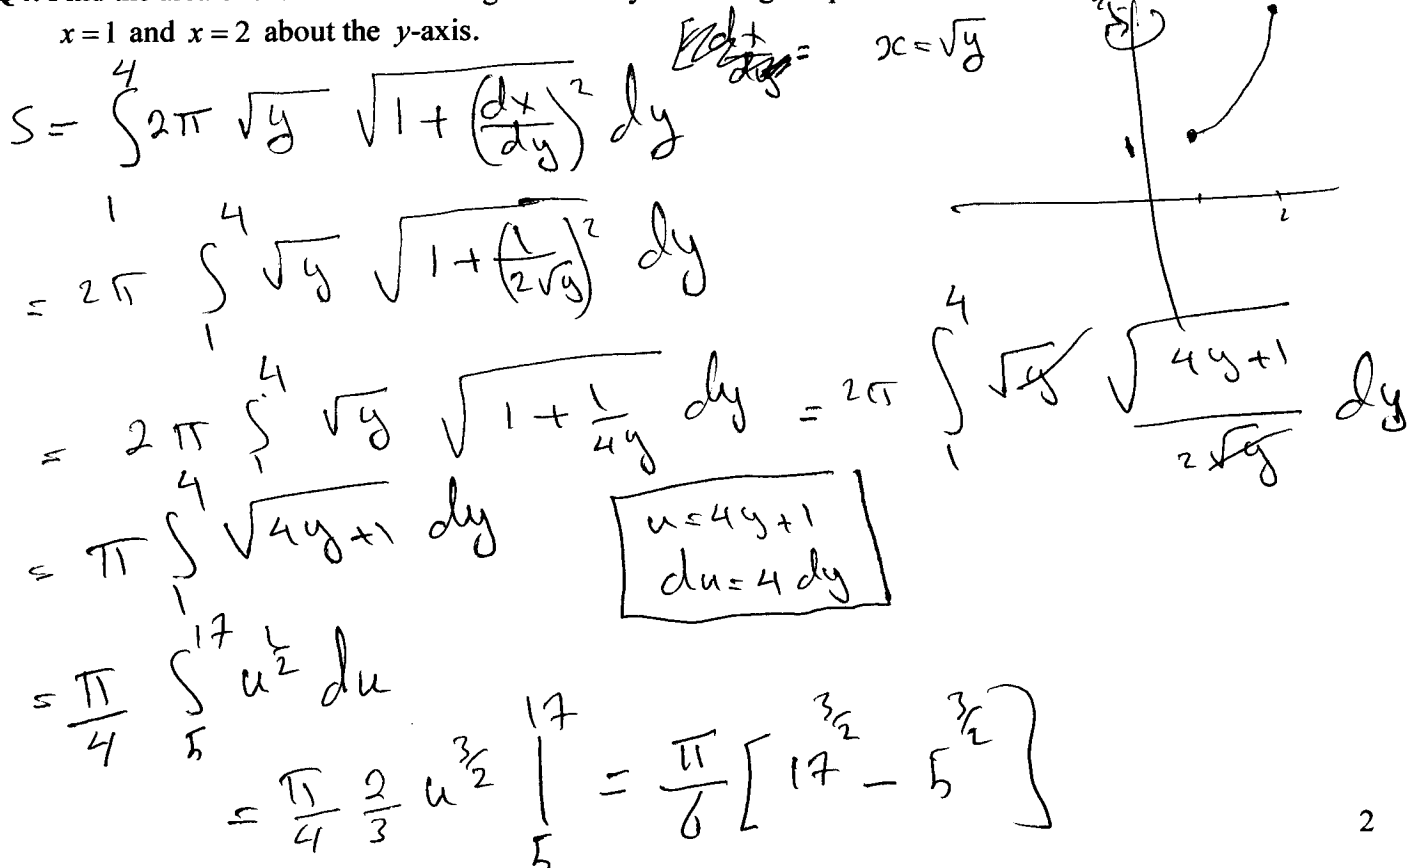 x = 1 and x = 2 about the y-axis.
x = √y
S = ∫₁⁴ 2π √y √(1 + (dx/dy)²) dy
= 2π ∫₁⁴ √y √(1 + (1/(2√y))²) dy
2
= 2π ∫₁⁴ √y √(1 + 1/(4y)) dy = 2π ∫₁⁴ √y √(4y+1)/(2√y) dy
= π ∫₁⁴ √(4y+1) dy
u = 4y+1
du = 4 dy
= π/4 ∫₅¹⁷ u^(1/2) du
= π/4 2/3 u^(3/2) |₅¹⁷ = π/6 [17^(3/2) − 5^(3/2)]
2